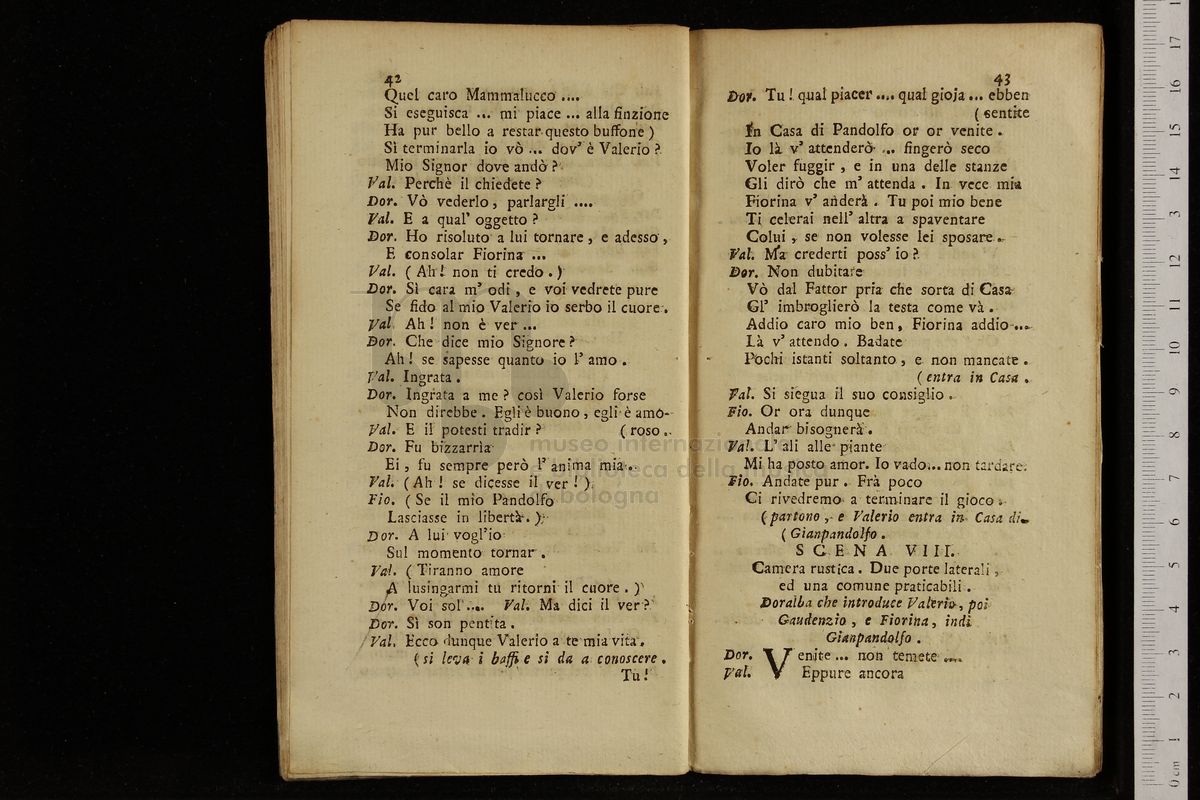 42
Quel caro Mammalucco ....
Si eseguisca ... mi piace ... alla finzione
Ha pur bello a restar questo buffone )
Sì terminarla io vò ... dov' è Valerio ?
Mio Signor dove andò ?
Val. Perchè il chiedete ?
Dor. Vò vederlo, parlargli ....
Val. E a qual' oggetto ?
Dor. Ho risoluto a lui tornare, e adesso,
E consolar Fiorina ...
Val. ( Ah ! non ti credo . )
Dor. Sì cara m' odi, e voi vedrete pure
Se fido al mio Valerio io serbo il cuore.
Val. Ah ! non è ver ...
Dor. Che dice mio Signore ?
Ah ! se sapesse quanto io l' amo .
Val. Ingrata .
Dor. Ingrata a me ? così Valerio forse
Non direbbe . Egli è buono, egli è amo-
Val. E il potesti tradir ? ( roso .
Dor. Fu bizzarrìa
Ei, fu sempre però l' anima mia .
Val. ( Ah ! se dicesse il ver ! )
Fio. ( Se il mio Pandolfo
Lasciasse in libertà . )
Dor. A lui vogl'io
Sul momento tornar .
Val. ( Tiranno amore
A lusingarmi tu ritorni il cuore . )
Dor. Voi sol .... Val. Ma dici il ver ?
Dor. Sì son pentita .
Val. Ecco dunque Valerio a te mia vita .
( si leva i baffi e si da a conoscere .
Tu !
43
Dor. Tu ! qual piacer .... qual gioja ... ebben
( sentite
In Casa di Pandolfo or or venite .
Io là v' attenderò ... fingerò seco
Voler fuggir, e in una delle stanze
Gli dirò che m' attenda . In vece mia
Fiorina v' anderà . Tu poi mio bene
Ti celerai nell' altra a spaventare
Colui, se non volesse lei sposare .
Val. Ma crederti poss' io ?
Dor. Non dubitare
Vò dal Fattor pria che sorta di Casa
Gl' imbroglierò la testa come và .
Addio caro mio ben, Fiorina addio ...
Là v' attendo . Badate
Pochi istanti soltanto, e non mancate .
( entra in Casa .
Val. Si siegua il suo consiglio .
Fio. Or ora dunque
Andar bisognerà .
Val. L' ali alle piante
Mi ha posto amor. Io vado... non tardare.
Fio. Andate pur . Frà poco
Ci rivedremo a terminare il gioco .
( partono, e Valerio entra in Casa di
( Gianpandolfo .
SCENA VIII.
Camera rustica . Due porte laterali,
ed una comune praticabili .
Doralba che introduce Valerio, poi
Gaudenzio, e Fiorina, indi
Gianpandolfo .
Dor. Venite ... non temete ....
Val. Eppure ancora
museo internazionale
e biblioteca della musica
bologna